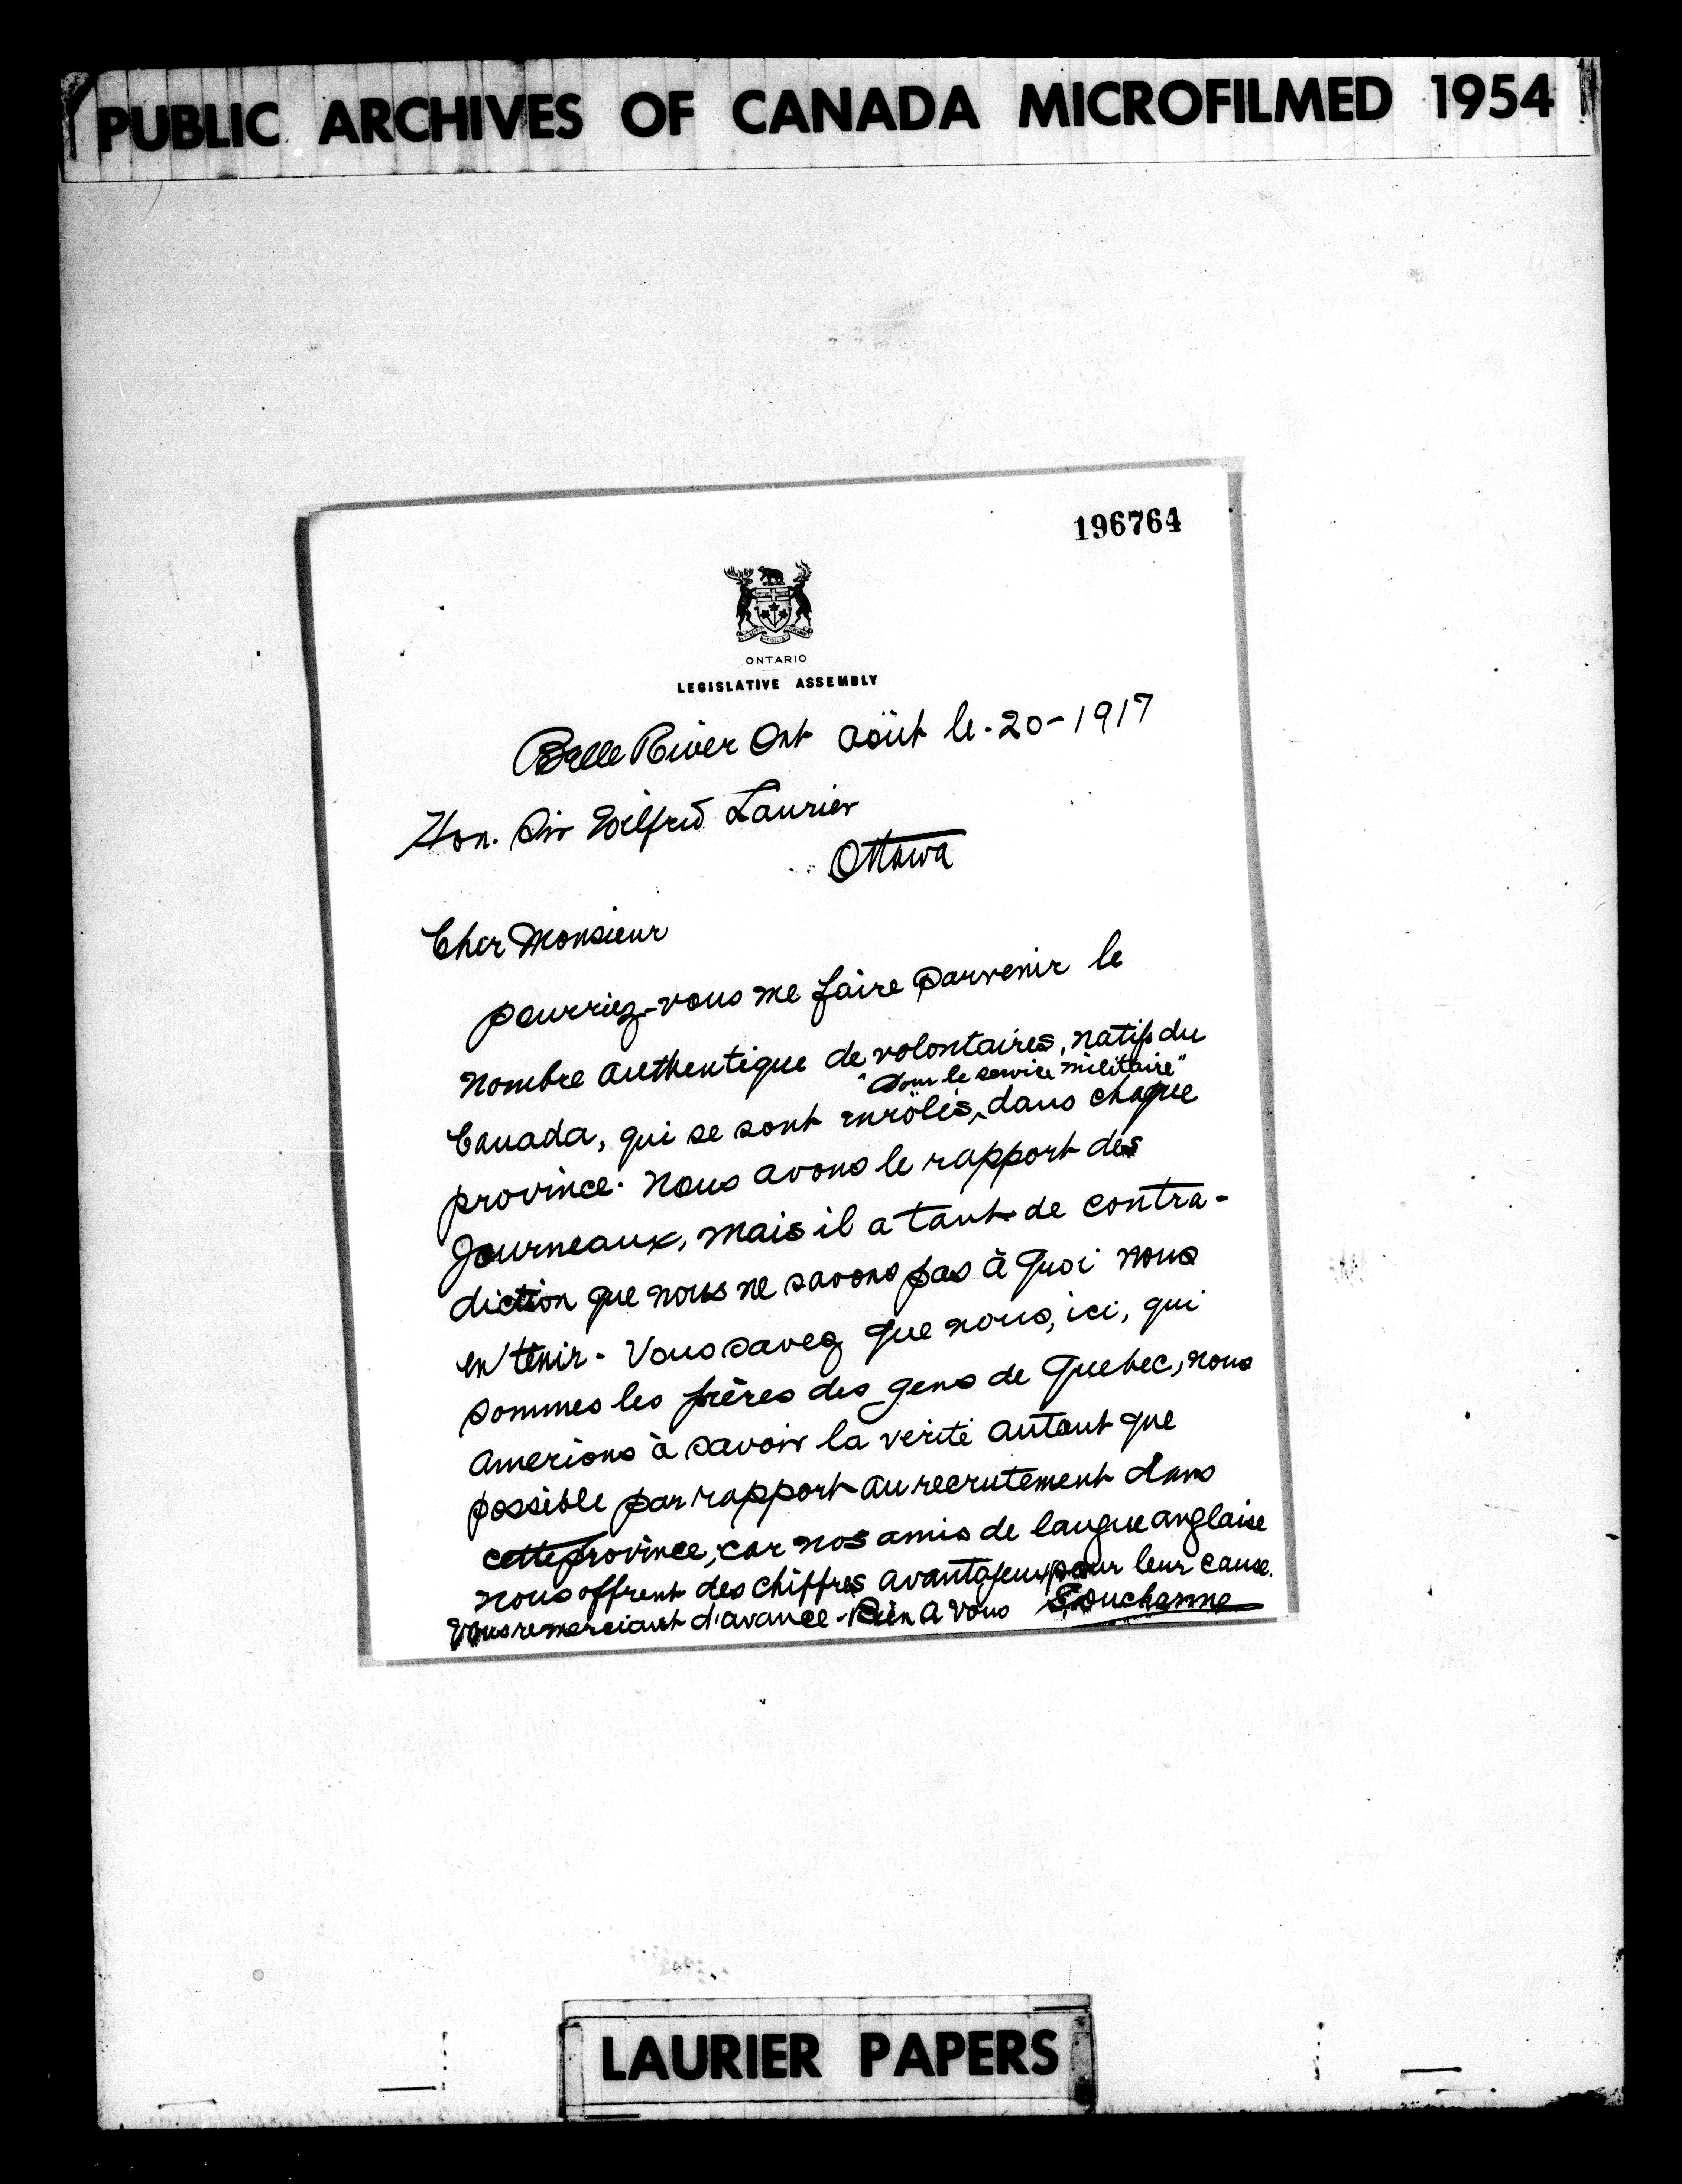 PUBLIC ARCHIVES OF CANADA MICROFILMED 1954
196764
ONTARIO
LEGISLATIVE ASSEMBLY
Belle River Ont aöut le. 20-1917
Hon. Sir Wilfrid Laurier
Ottawa
Cher Monsieur
pourriez-vous me faire parvenir le
nombre authentique de volontaires, natifs du
"Pour le service militaire"
Canada, qui se sont enrôlés, dans chaque
province. Nous avons le rapport des
journeaux, mais il a tant de contra-
diction que nous ne savons pas à quoi nous
en tenir. Vous savez que nous, ici, qui
sommes les frères des gens de Quebec, nous
amerions à savoir la verité autant que
possible par rapport au recrutement dans
cette province, car nos amis de langue anglaise
nous offrent des chiffres avantajeux pour leur cause.
Vous remerciant d'avance - Bien A Vous S. Ducharme
LAURIER PAPERS